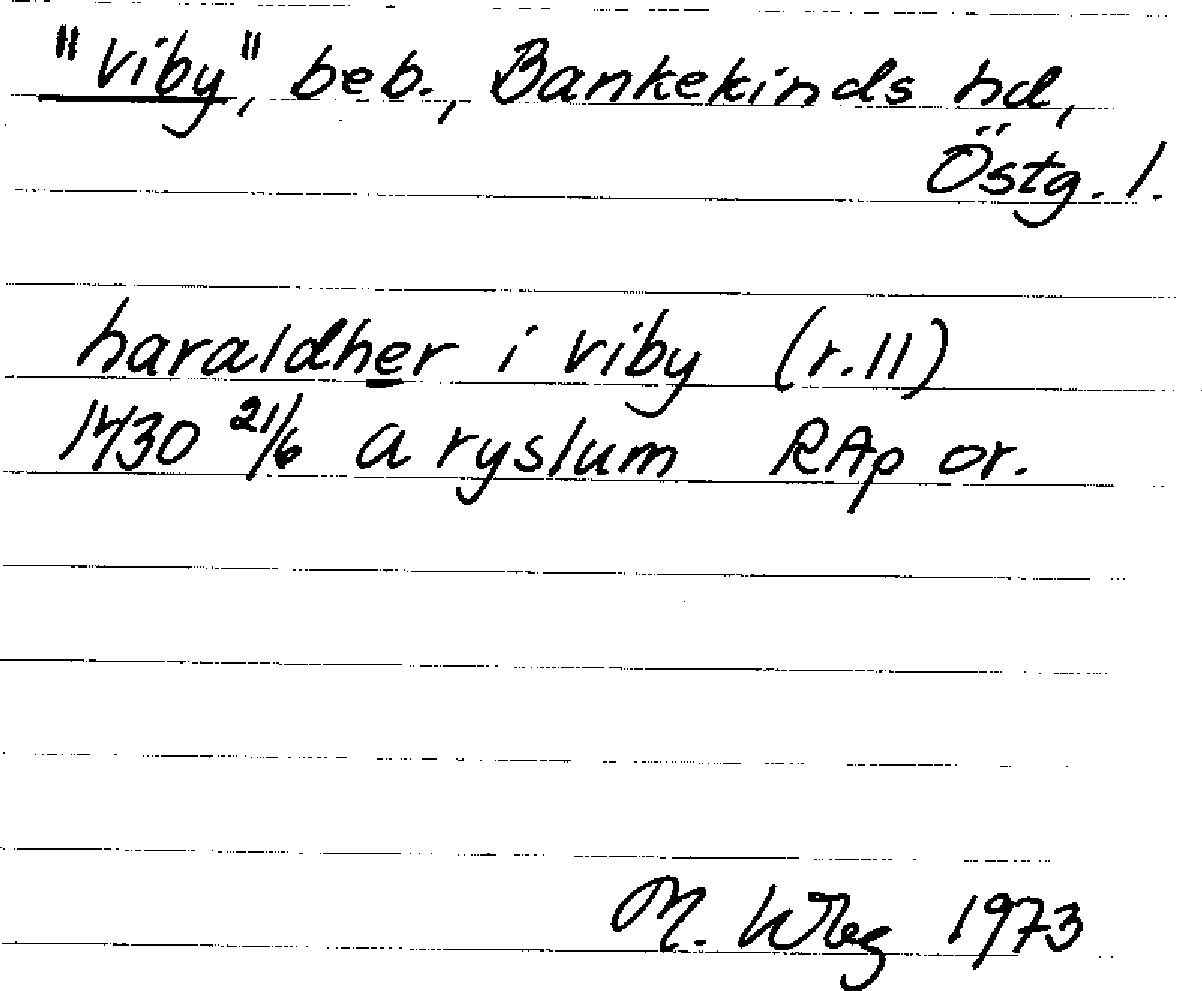 "Viby", beb., Bankekinds hd,
Östg. l.
haraldher i viby (r.11)
1430 21/6 a ryslum RAp or.
M. Wbg 1973